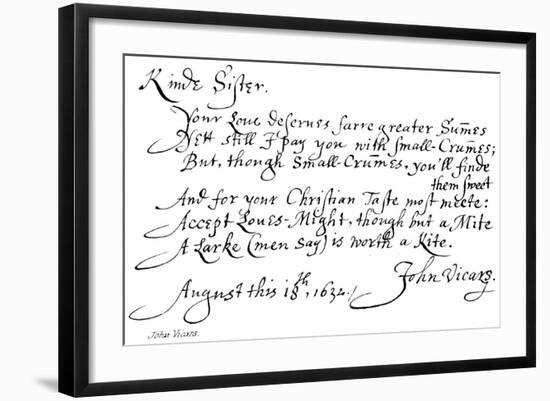 Kinde Sister.
Your Loue deserues farre greater Sum̄es
Yett still I pay you with small-Crum̄es;
But, though Small-Crum̄es, you'll finde
them sweet
And for your Christian Taste most meete:
Accept Loues-Might, though but a Mite
A Larke (men say) is worth a Kite.
John Vicars.
August this 18th, 1632.
John Vicars.